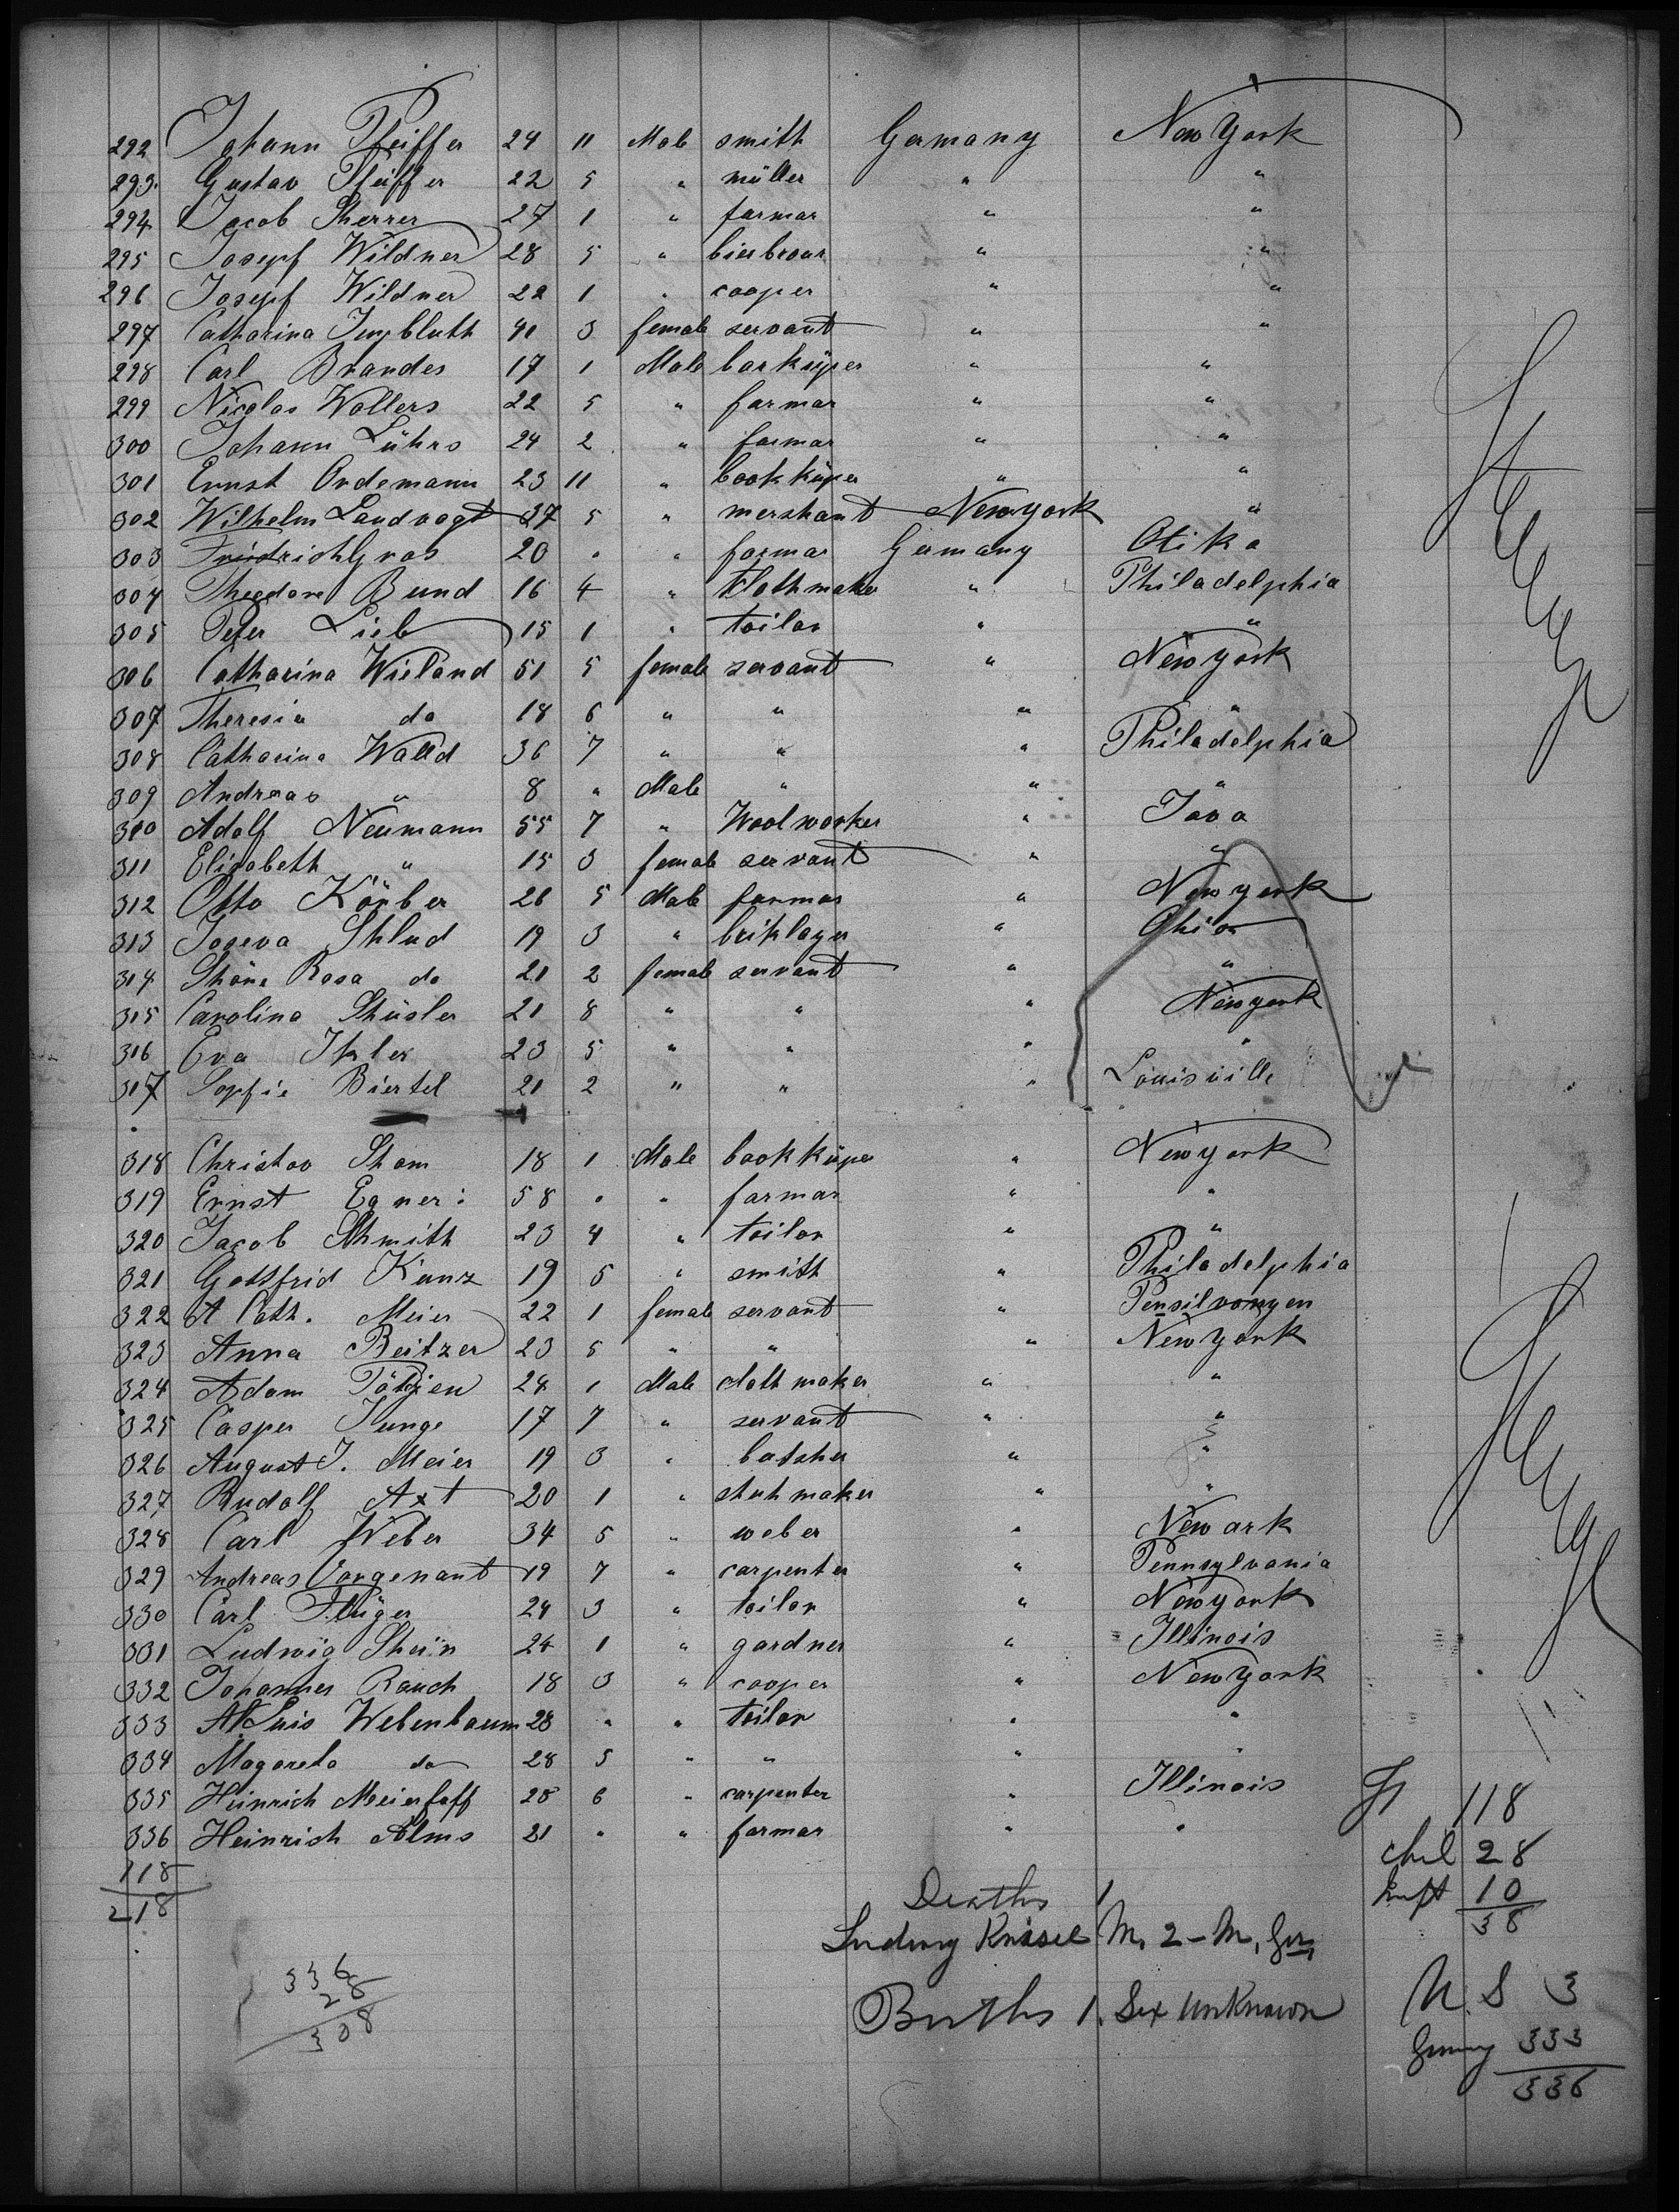 292 Johann Pfeiffer 24 11 Male smith Germany New York
293. Gustav Pfeiffer 22 5 " müller " "
294 Jacob Sherrer 27 1 " farmar " "
295 Josepf Wildner 28 5 " bierbrour " "
296 Josepf Wildner 22 1 " cooper " "
297 Catharina Impbluth 41 3 female servant " "
298 Carl Brandes 17 1 Male barküper " "
299 Nicolas Wollers 22 5 " farmar " "
300 Johann Lührs 24 2 " farmar " "
301 Ernst Ordemann 23 11 " bookküper " "
302 Wilhelm Landvogt 27 5 " mershant Newyork "
303 Friedrich Gras 20 " " farmar Germany Otika
304 Theodore Bund 16 4 " Clothmaker " Philadelphia
305 Peter Lieb 15 1 " toilor " "
306 Catharina Wieland 51 5 female servant " Newyork
307 Theresia do 18 6 " " " "
308 Catharina Walld 36 7 " " " Philadelphia
309 Andreas " 8 " Male " " "
310 Adolf Neumann 55 7 " Woolworker " Iova
311 Elisabeth " 15 3 female servant " "
312 Otto Körber 26 5 Male farmar " Newyork
313 Joseva Shlud 19 3 " briklayer " Ohio
314 Shöne Rosa do 21 2 female servant " "
315 Carolina Shüsler 21 8 " " " Newyork
316 Eva Ihler 23 5 " " " "
317 Sopfie Biertel 21 2 " " " Louisville
318 Christov Sham 18 1 Male bookküper " Newyork
319 Ernst Egner: 58 " " farmar " "
320 Jacob Shmith 23 4 " toilor " "
321 Gottfrid Kunz 19 5 " smith " Philadelphia
322 A Cath. Meier 22 1 female servant " Pensilvanyen
323 Anna Beitzer 23 5 " " " Newyork
324 Adam 24 1 Male cloth maker " "
325 Casper Junge 17 7 " servant " "
326 August J. Meier 19 3 " butsher " "
327 Rudolf Axt 20 1 " shuhmaker " "
328 Carl Weber 34 5 " weber " Newark
329 Andreas Vorgenant 19 7 " carpenter " Pennsylvania
330 Carl Flüger 24 3 " toilor " Newyork
331 Ludwig Shein 24 1 " gardner " Illinois
332 Johannes Rauch 18 3 " cooper " Newyork
333 Webenbaum 28 " " toilor " "
334 Magareta do 28 5 " " " "
335 Heinrich Meierhoff 28 6 " carpenter " Illinois
336 Heinrich Alms 21 " " farmar " "
118
218
118
Chil 28
Inft 10
38
Deaths 1
Ludwig Knissel M. 2-M, Ger,
336
28
308
Births 1. Sex unknown
U.S 3
Germy 333
336